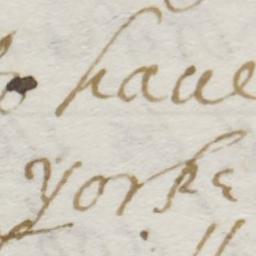 to haue
Yorke